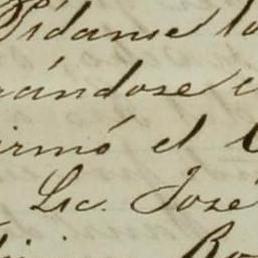 Pídanse lo
rándose e
irmó el C
Lic. José
Ro